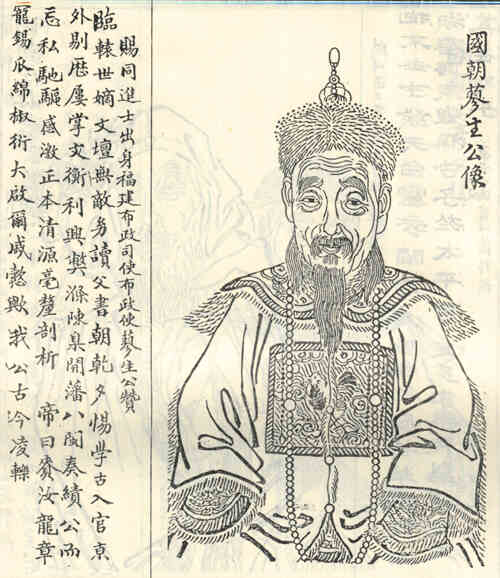 國朝蓼生公像
賜同進士出身福建布政司使布政使蓼生公贊
臨轅世嫡文壇無敵讀父書朝乾夕惕學古入官京
外剔厯屢掌文衡利興獘滌陳臬開潘八閩奏績公而
忘私馳驅感激正本清源毫釐剖析 帝曰賚汝龍章
寵錫瓜綿椒衍大啟爾戚懿歟我公古今凌轢